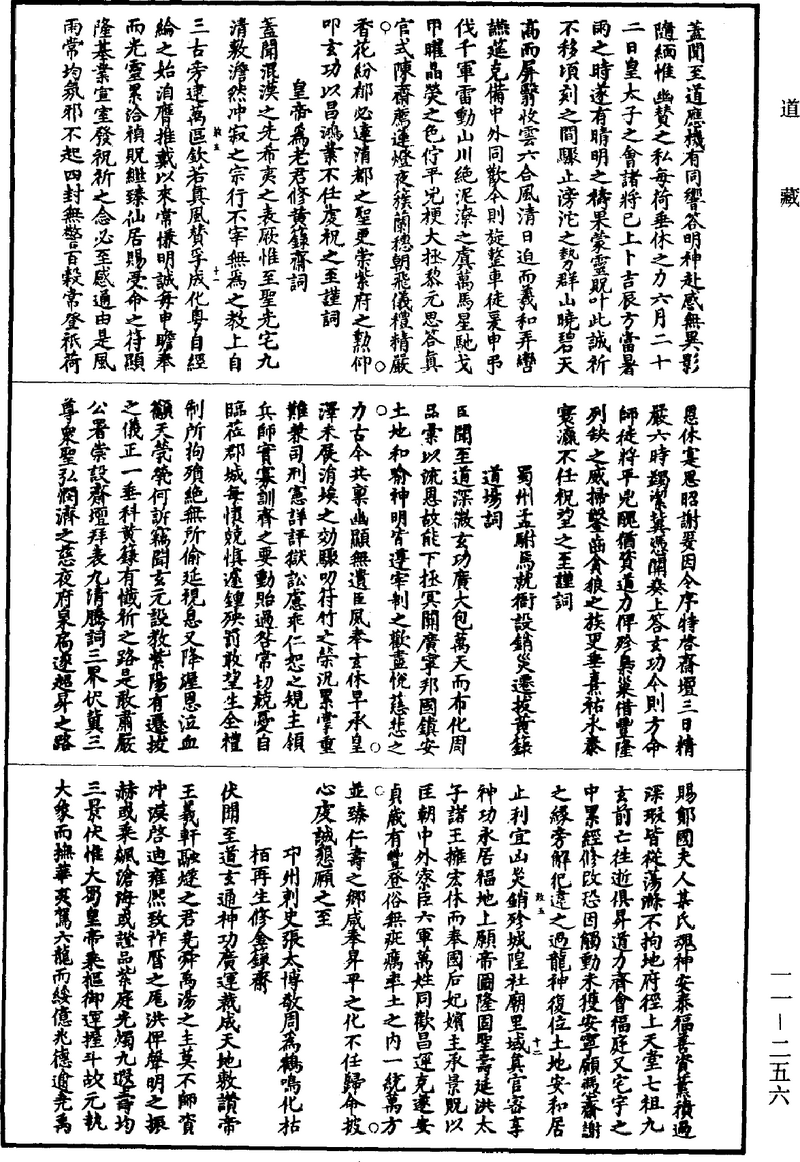 道藏
蓋聞至道應機有同響答明神赴感無異影
隨緬惟幽贊之私每荷垂休之力六月二十
二日皇太子之會諸將已上卜吉辰方當暑
雨之時遂有晴明之禱果蒙靈貺叶此誠祈
不移頃刻之間驟止滂沱之勢群山曉碧天
高而屏翳收雲六合風清日迫而羲和弄轡
讌筵克備中外同歡今則旋整車徒爰申弔
伐千軍雷動山川絕泥潦之虞萬馬星馳戈
甲曜晶熒之色佇平兇梗大拯黎元思答真
官式陳齋薦蓮燈夜簇蘭穗朝飛儀禮精嚴
香花紛郁必達清都之聖更崇紫府之勳仰
叩玄功以昌鴻業不任虔祝之至謹詞
皇帝為老君修黃籙齋詞
蓋聞混漠之先希夷之表厥惟至聖先宅九
清敷澹然沖寂之宗行不宰無為之教上自
三古旁逮萬區欽若真風贊孚成化粵自經
綸之始洎膺推戴以來常慊明誠每申瞻奉
而光靈累洽禎貺繼臻仙居賜受命之符顯
隆基業宣室發祝祈之念必至感通由是風
雨常均氛邪不起四封無警百穀常登祇荷
恩休寔思昭謝爰因令序特啓齋壇三日精
嚴六時蠲潔冀憑關奏上答玄功今則方命
師徒將平兇醜偹資道力俾殄梟巢借豐隆
列缺之威掃鑿齒貪狼之族更垂熹祐永泰
寰瀛不任祝望之至謹詞
蜀州孟駙馬就衙設銷災遷拔黃籙
道場詞
臣聞至道深微玄功廣大包萬天而布化周
品彙以流恩故能下拯冥關廣寧邦國鎮安
土地和喻神明皆遵宰制之歡盡悅慈悲之
力古今共稟幽顯無遺臣夙奉玄休早承皇
澤未展涓埃之効驟叨符竹之榮況累掌重
難兼司刑憲詳評獄訟慮乖仁恕之規主領
兵師實寡訓齊之要動貽過咎常切兢憂自
臨莅郡城每懷兢慎遽鍾殃罰敢望生全禮
制所拘殞絕無所偷延視息又降渥恩泣血
籲天煢煢何訴竊聞玄元設教紫陽有遷拔
之儀正一垂科黃籙有懺祈之路是敢肅嚴
公署崇設齋壇拜表九清騰詞三界伏冀三
尊衆聖弘憫濟之慈夜府泉扃遂超昇之路
賜郇國夫人某氏魂神安泰福善資薰積過
深瑕皆從蕩滌不拘地府徑上天堂七祖九
玄前亡往逝俱昇道力齊會福庭又宅宇之
中累經修改恐因觸動未獲安寧願馮齋謝
之緣旁解犯違之過龍神復位土地安和居
止利宜山災銷殄城隍社廟里域真官咨享
神功永居福地上願帝圖隆固聖壽延洪太
子諸王擁宏休而奉國后妃嬪主承景貺以
匡朝中外寮臣六軍萬姓同歡昌運克遂安
貞歲有豐登俗無疵癘率土之內一統萬方
並臻仁壽之鄉咸奉昇平之化不任歸命披
心虔誠懇願之至
邛州刺史張太博敬周為鶴鳴化枯
栢再生修金籙齋
伏聞至道玄通神功廣運裁成天地敷讚帝
王羲軒融燧之君堯舜禹湯之主莫不師資
沖漠啓迪雍熙致祚曆之尨洪俾聲明之振
赫或乘飆滄海或證品紫庭光燭九遐壽均
三景伏惟大蜀皇帝乘樞御運握斗啟元執
大象而撫華夷駕六龍而綏億兆德逾堯禹
一一—二五六